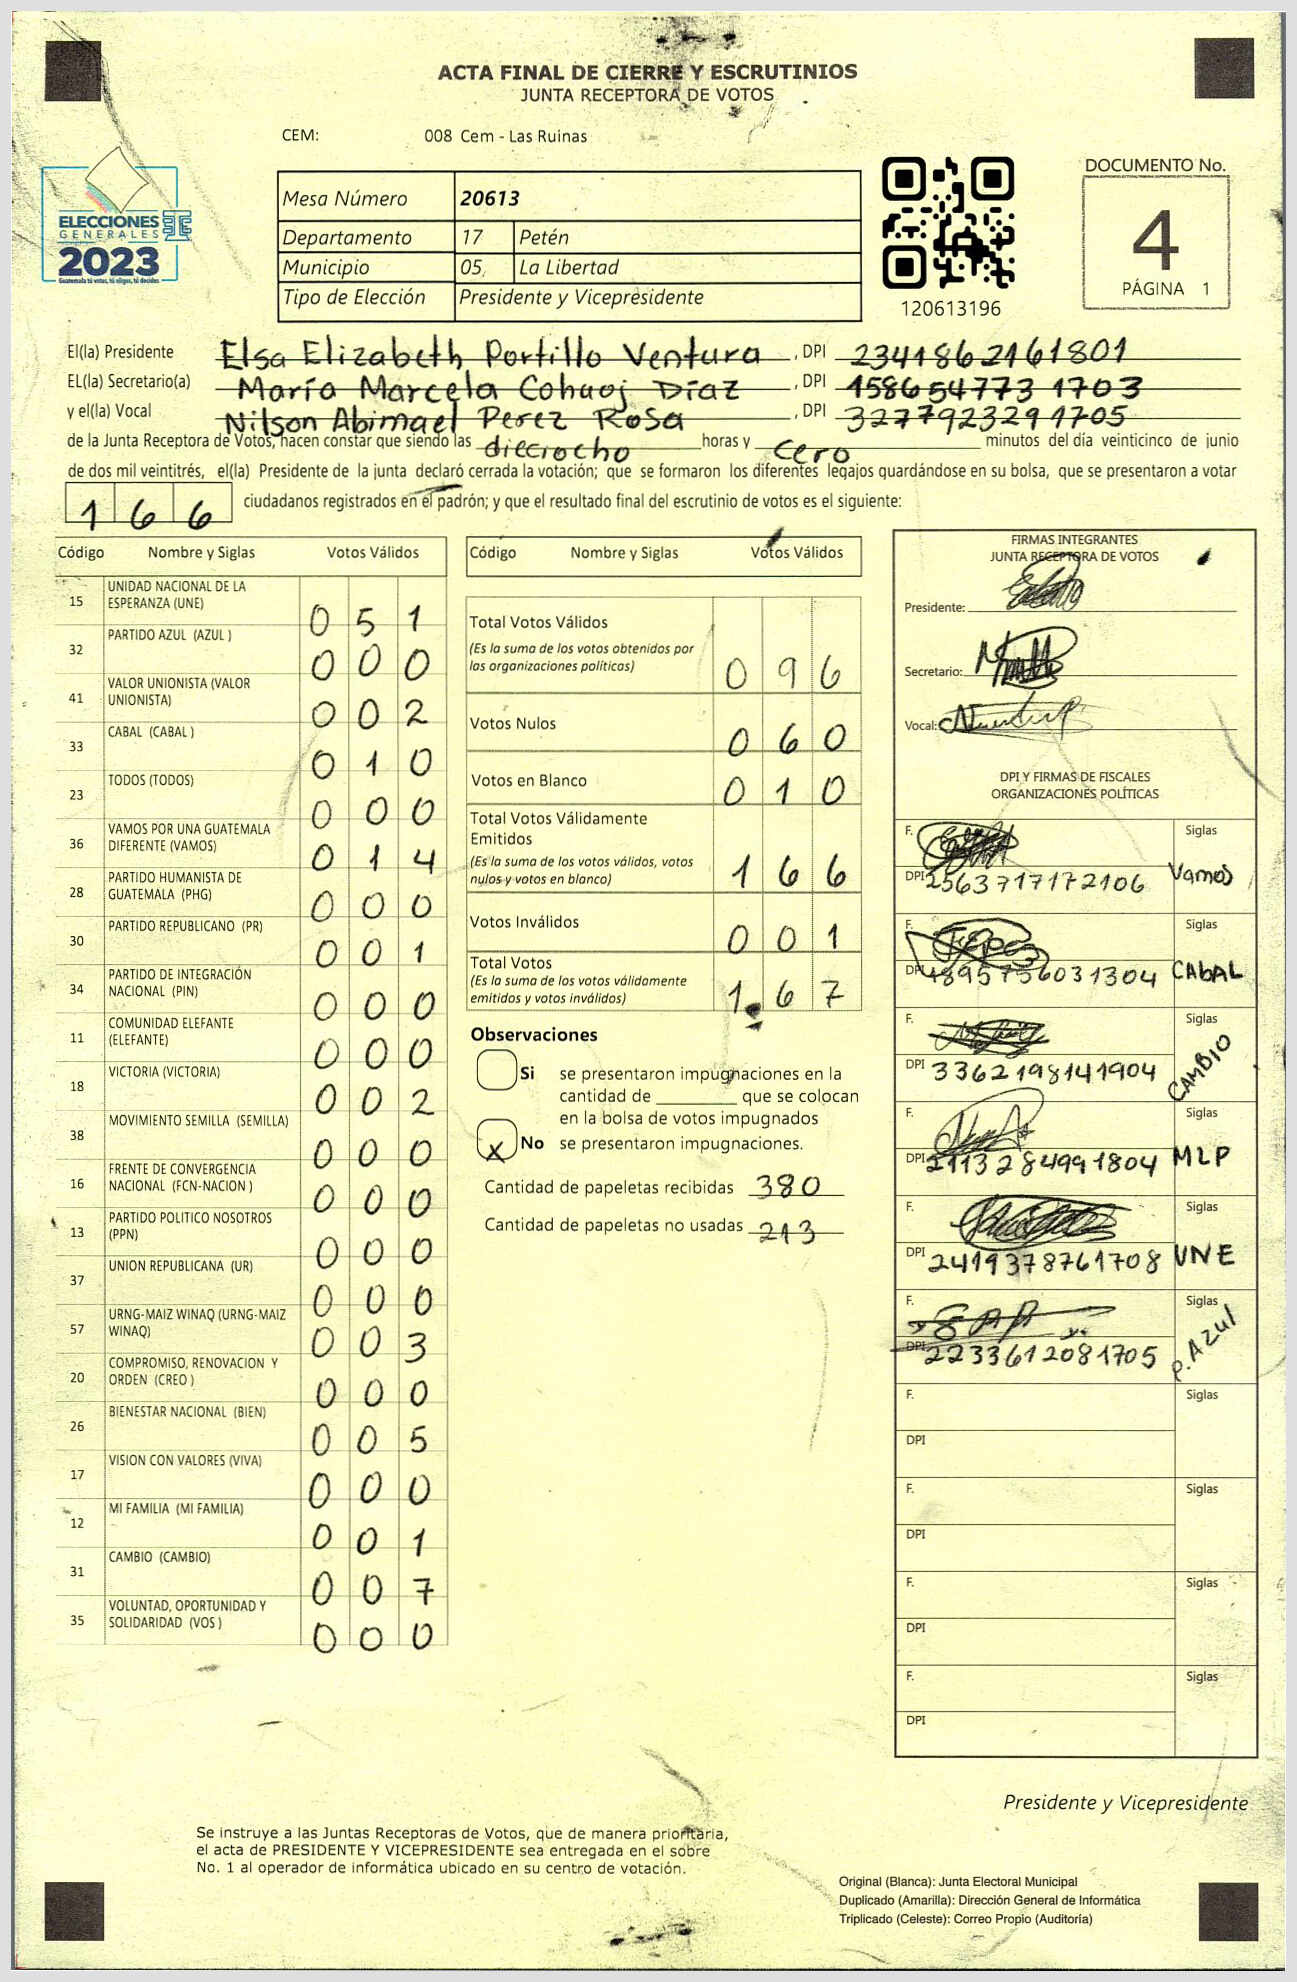 ACTA FINAL DE CIERRE Y ESCRUTINIOS
JUNTA RECEPTORA DE VOTOS
CEM: 008 Cem - Las Ruinas
ELECCIONES
GENERALES
2023
Guatemala tú votas, tú eliges, tú decides
Mesa Número 20613
Departamento 17 Petén
Municipio 05, La Libertad
Tipo de Elección Presidente y Vicepresidente
120613196
DOCUMENTO No.
4
PÁGINA 1
El(la) Presidente Elsa Elizabeth Portillo Ventura , DPI 2341862161801
EL(la) Secretario(a) María Marcela Cohuoj Díaz , DPI 158654773 1703
y el(la) Vocal Nilson Abimael Perez Rosa , DPI 327792329 1705
de la Junta Receptora de Votos, hacen constar que siendo las dieciocho horas y cero minutos del día veinticinco de junio
de dos mil veintitrés, el(la) Presidente de la junta declaró cerrada la votación; que se formaron los diferentes legajos guardándose en su bolsa, que se presentaron a votar
166 ciudadanos registrados en el padrón; y que el resultado final del escrutinio de votos es el siguiente:
Código Nombre y Siglas Votos Válidos
15 UNIDAD NACIONAL DE LA ESPERANZA (UNE) 051
32 PARTIDO AZUL (AZUL ) 000
41 VALOR UNIONISTA (VALOR UNIONISTA) 002
33 CABAL (CABAL ) 010
23 TODOS (TODOS) 000
36 VAMOS POR UNA GUATEMALA DIFERENTE (VAMOS) 014
28 PARTIDO HUMANISTA DE GUATEMALA (PHG) 000
30 PARTIDO REPUBLICANO (PR) 001
34 PARTIDO DE INTEGRACIÓN NACIONAL (PIN) 000
11 COMUNIDAD ELEFANTE (ELEFANTE) 000
18 VICTORIA (VICTORIA) 002
38 MOVIMIENTO SEMILLA (SEMILLA) 000
16 FRENTE DE CONVERGENCIA NACIONAL (FCN-NACION ) 000
13 PARTIDO POLITICO NOSOTROS (PPN) 000
37 UNION REPUBLICANA (UR) 000
57 URNG-MAIZ WINAQ (URNG-MAIZ WINAQ) 003
20 COMPROMISO, RENOVACION Y ORDEN (CREO ) 000
26 BIENESTAR NACIONAL (BIEN) 005
17 VISION CON VALORES (VIVA) 000
12 MI FAMILIA (MI FAMILIA) 001
31 CAMBIO (CAMBIO) 007
35 VOLUNTAD, OPORTUNIDAD Y SOLIDARIDAD (VOS ) 000
Código Nombre y Siglas Votos Válidos
Total Votos Válidos
(Es la suma de los votos obtenidos por
las organizaciones políticas) 096
Votos Nulos 060
Votos en Blanco 010
Total Votos Válidamente
Emitidos
(Es la suma de los votos válidos, votos
nulos y votos en blanco) 166
Votos Inválidos 001
Total Votos
(Es la suma de los votos válidamente
emitidos y votos inválidos) 167
Observaciones
Si se presentaron impugnaciones en la
cantidad de ________ que se colocan
en la bolsa de votos impugnados
X No se presentaron impugnaciones.
Cantidad de papeletas recibidas 380
Cantidad de papeletas no usadas 213
FIRMAS INTEGRANTES
JUNTA RECEPTORA DE VOTOS
Presidente:
Secretario:
Vocal:
DPI Y FIRMAS DE FISCALES
ORGANIZACIONES POLÍTICAS
F. Siglas
DPI 2563717172106 Vamos
F. Siglas
DPI 4895756031304 CAbAL
F. Siglas
DPI 3362198141904 CAMBIO
F. Siglas
DPI 2113284991804 MLP
F. Siglas
DPI 2419378761708 UNE
F. Siglas
DPI 2233612081705 P.Azul
F. Siglas
DPI
F. Siglas
DPI
F. Siglas
DPI
F. Siglas
DPI
Presidente y Vicepresidente
Se instruye a las Juntas Receptoras de Votos, que de manera prioritaria,
el acta de PRESIDENTE Y VICEPRESIDENTE sea entregada en el sobre
No. 1 al operador de informática ubicado en su centro de votación.
Original (Blanca): Junta Electoral Municipal
Duplicado (Amarilla): Dirección General de Informática
Triplicado (Celeste): Correo Propio (Auditoría)